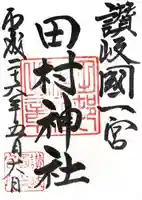 讃岐國一宮
田村神社
平成二十六年五月六日